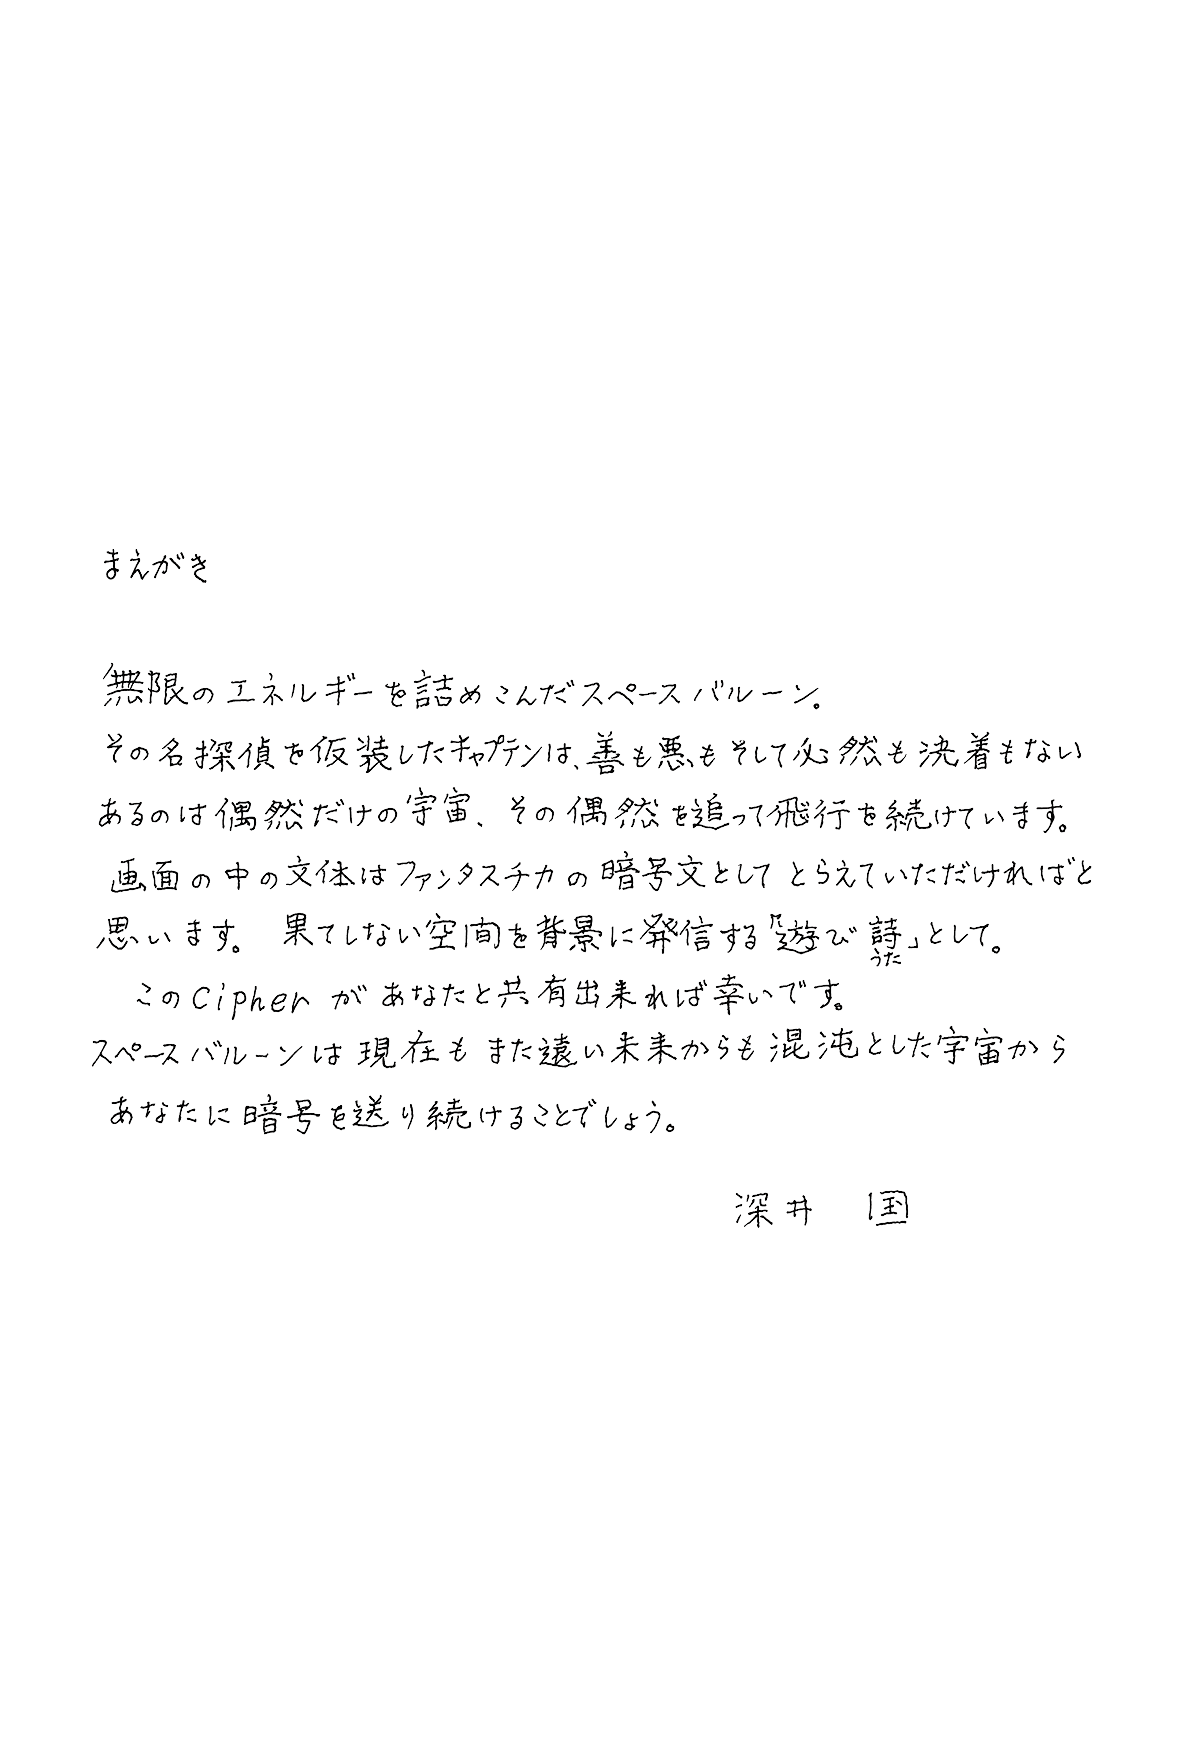 まえがき
無限のエネルギーを詰めこんだスペースバルーン。
その名探偵を仮装したキャプテンは、善も悪もそして必然も決着もない
あるのは偶然だけの宇宙、その偶然を追って飛行を続けています。
画面の中の文体はファンタスチカの暗号文としてとらえていただければと
思います。 果てしない空間を背景に発信する「遊び詩」として。
うた
このCipherがあなたと共有出来れば幸いです。
スペースバルーンは現在もまた遠い未来からも混沌とした宇宙から
あなたに暗号を送り続けることでしょう。
深井 国